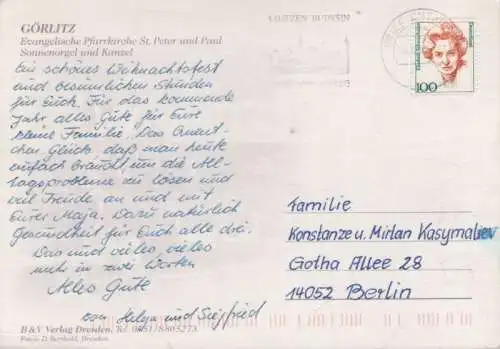 GÖRLITZ
Evangelische Pfarrkirche St. Peter und Paul
Sonnenorgel und Kanzel
Ein schönes Weihnachtsfest
und besinnlichen Stunden
für Euch. Für das kommende
Jahr alles Gute für Eure
kleine Familie. Das Quent-
chen Glück, daß man heute
einfach braucht, um die All-
tagsprobleme zu lösen und
viel Freude an und mit
Eurer Maja. Dazu natürlich
Gesundheit für Euch alle drei.
Das und vieles, vieles
mehr in zwei Worten
Alles Gute
von Helga und Siegfried
B & V Verlag Dresden, Tel. 0351/8805273
Foto: D. Berthold, Dresden
BAUTZEN BUDYŠIN
100
Familie
Konstanze u. Mirlan Kasymaliev
Gotha Allee 28
14052 Berlin